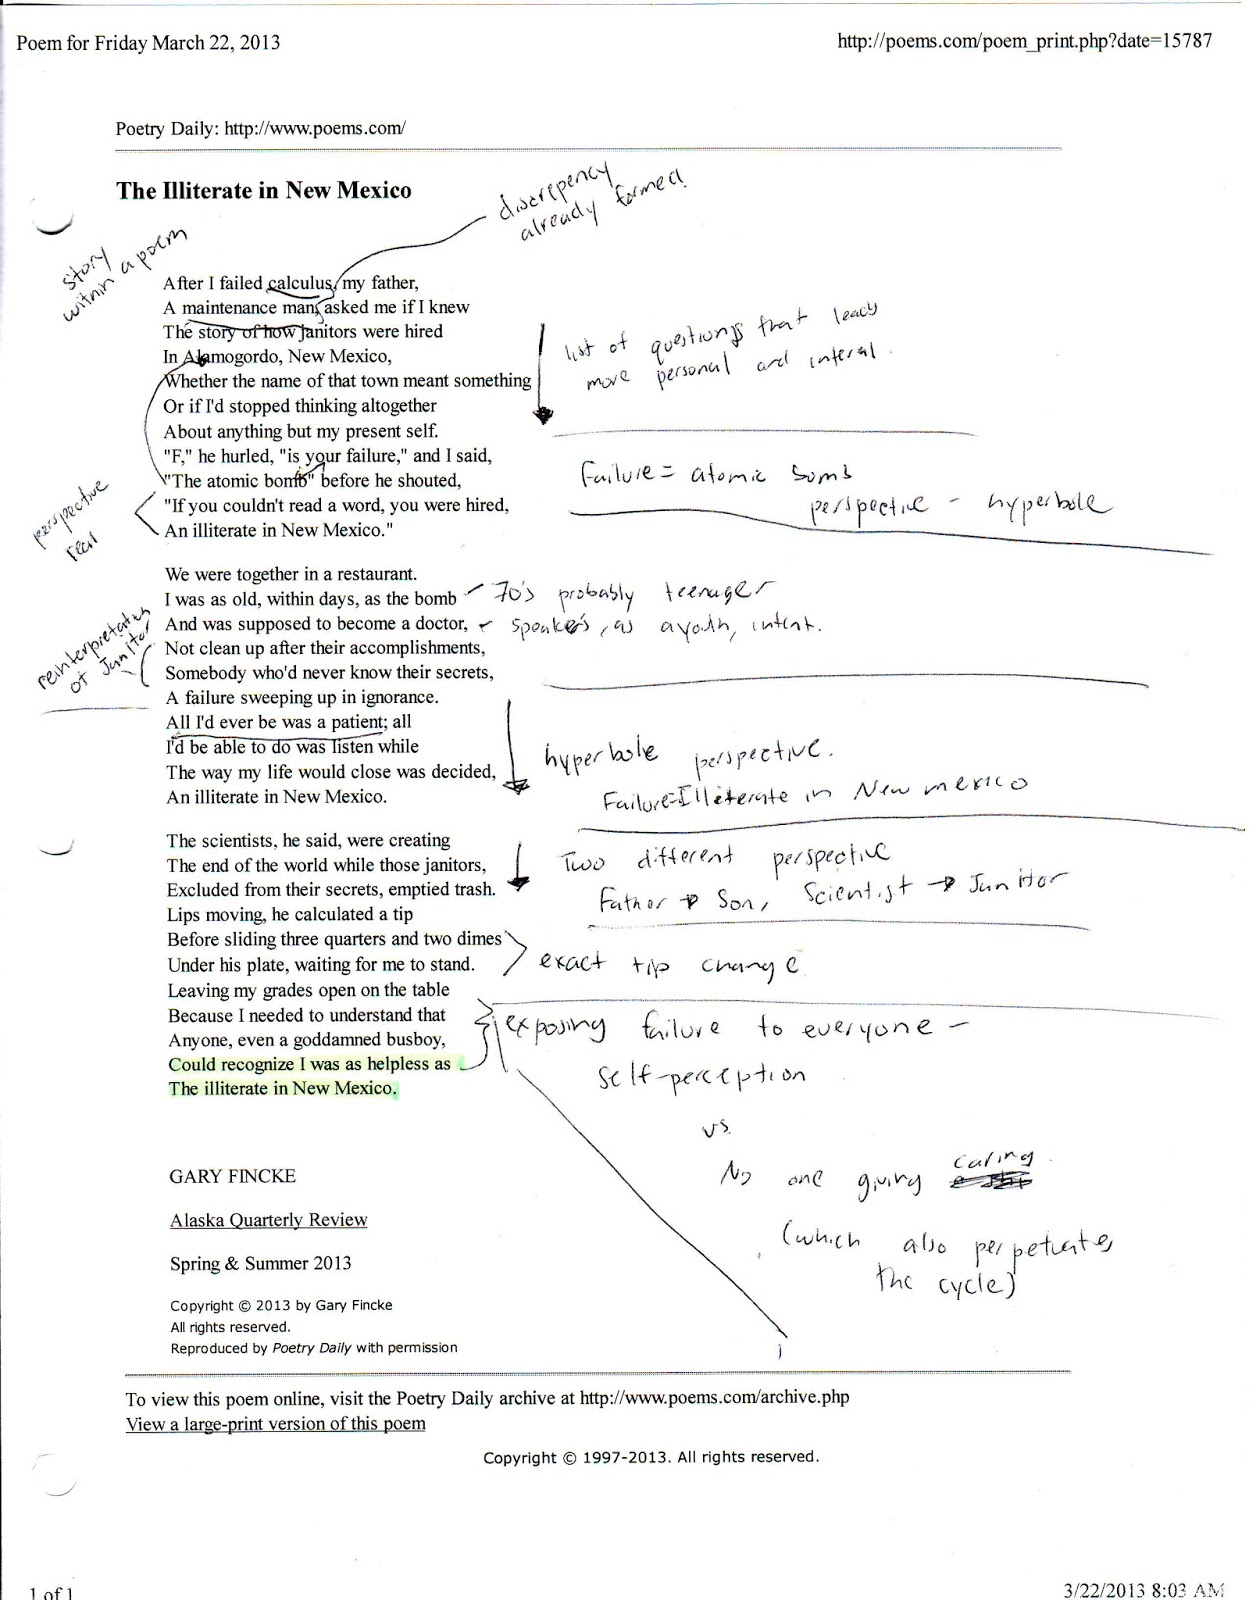 Poem for Friday March 22, 2013
http://poems.com/poem_print.php?date=15787
Poetry Daily: http://www.poems.com/
The Illiterate in New Mexico
discrepency
already formed.
story
within a poem
After I failed calculus, my father,
A maintenance man, asked me if I knew
The story of how janitors were hired
In Alamogordo, New Mexico,
Whether the name of that town meant something
Or if I'd stopped thinking altogether
About anything but my present self.
"F," he hurled, "is your failure," and I said,
"The atomic bomb" before he shouted,
"If you couldn't read a word, you were hired,
An illiterate in New Mexico."
list of questions that leads
more personal and interal.
Failure = atomic bomb
perspective - hyperbole
perspective
real
We were together in a restaurant.
I was as old, within days, as the bomb
And was supposed to become a doctor,
Not clean up after their accomplishments,
Somebody who'd never know their secrets,
A failure sweeping up in ignorance.
All I'd ever be was a patient; all
I'd be able to do was listen while
The way my life would close was decided,
An illiterate in New Mexico.
70's probably teenager
speaker's, as a youth, intent.
reinterpretation
of Janitor
hyperbole perspective.
Failure=Illiterate in New mexico
The scientists, he said, were creating
The end of the world while those janitors,
Excluded from their secrets, emptied trash.
Lips moving, he calculated a tip
Before sliding three quarters and two dimes
Under his plate, waiting for me to stand.
Leaving my grades open on the table
Because I needed to understand that
Anyone, even a goddamned busboy,
Could recognize I was as helpless as
The illiterate in New Mexico.
Two different perspective
Father → Son, Scientist → Janitor
exact tip change
exposing failure to everyone -
self-perception
vs.
No one giving caring
(which also perpetuates
the cycle)
GARY FINCKE
Alaska Quarterly Review
Spring & Summer 2013
Copyright © 2013 by Gary Fincke
All rights reserved.
Reproduced by Poetry Daily with permission
To view this poem online, visit the Poetry Daily archive at http://www.poems.com/archive.php
View a large-print version of this poem
Copyright © 1997-2013. All rights reserved.
1 of 1
3/22/2013 8:03 AM